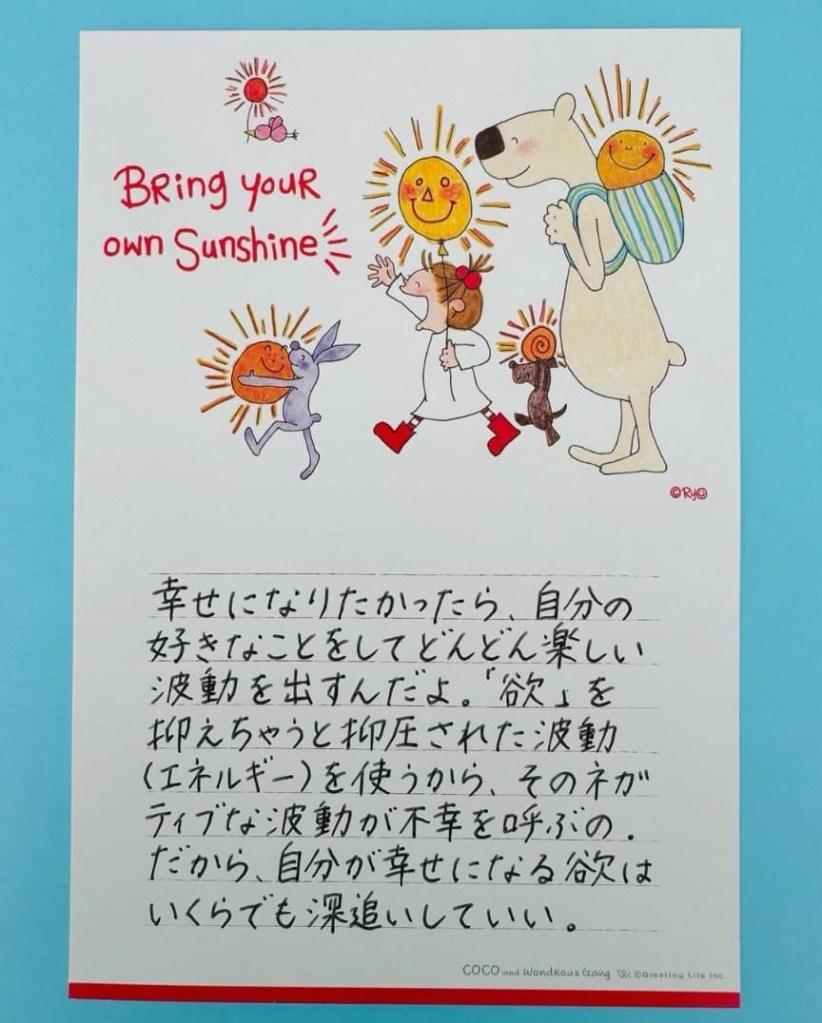 BRing youR
own Sunshine
©Ryo
幸せになりたかったら、自分の
好きなことをしてどんどん楽しい
波動を出すんだよ。「欲」を
抑えちゃうと抑圧された波動
(エネルギー)を使うから、そのネガ
ティブな波動が不幸を呼ぶの。
だから、自分が幸せになる欲は
いくらでも深追いしていい。
COCO and WondRous Gang ©Greeting Life Inc.